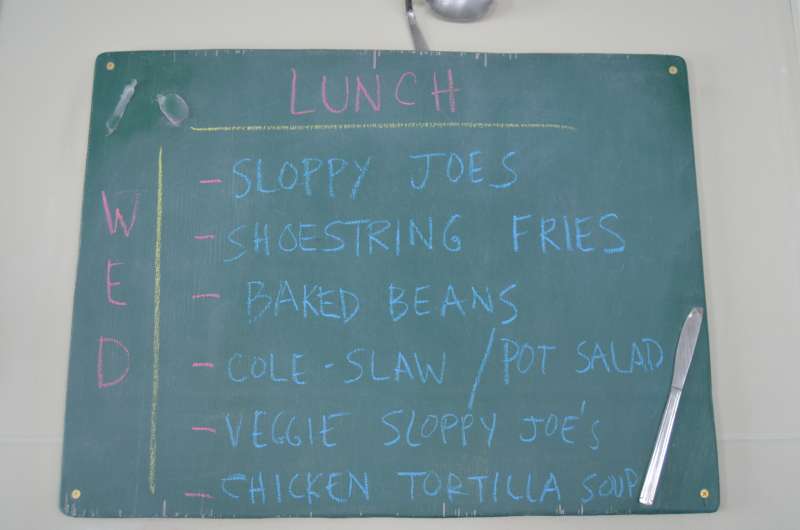 LUNCH
WED
- SLOPPY JOES
- SHOESTRING FRIES
- BAKED BEANS
- COLE-SLAW / POT SALAD
- VEGGIE SLOPPY JOE'S
- CHICKEN TORTILLA SOUP